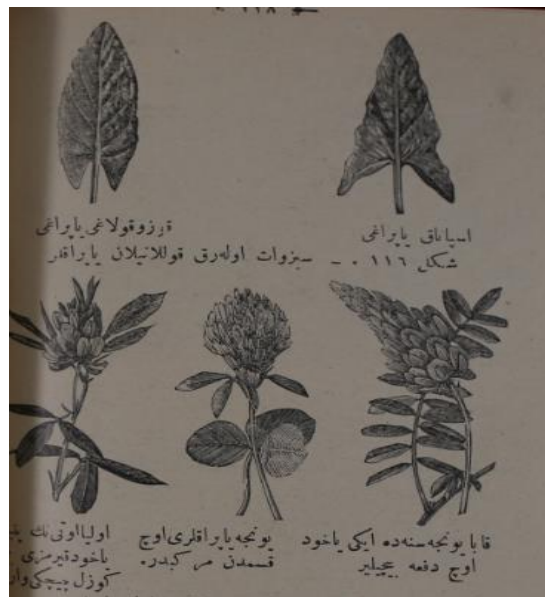 ١١٨
اسپاناق یاپراغی
قوزوقولاغی یاپراغی
شکل ١١٦ . ـ سبزوات اوله‌رق قوللانیلان یاپراقلر
قابا یونجه سنه‌ده ایکی یاخود
اوچ دفعه بیچیلیر
یونجه یاپراقلری اوچ
قسمدن مرکبدر.
اولیا اوتی نك
یاخود قیرمزی
کوزل چیچکی وار